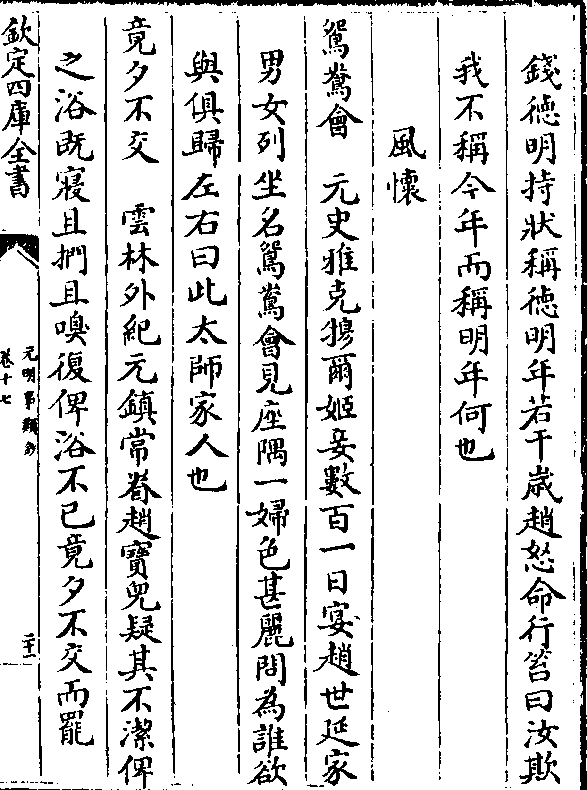 錢德明持狀稱德明年若干歲趙怒命行笞曰汝欺
我不稱今年而稱明年何也
風懷
鴛鴦會　元史雅克穆爾姬妾數百一日宴趙世延家
男女列坐名鴛鴦會見座隅一婦色甚麗問為誰欲
與俱歸左右曰此太師家人也
竟夕不交　雲林外紀元鎮常眷趙寶兒疑其不潔俾
之浴既寢且捫且嗅復俾浴不已竟夕不交而罷
欽定四庫全書
元明事類鈔
卷十七
二十一